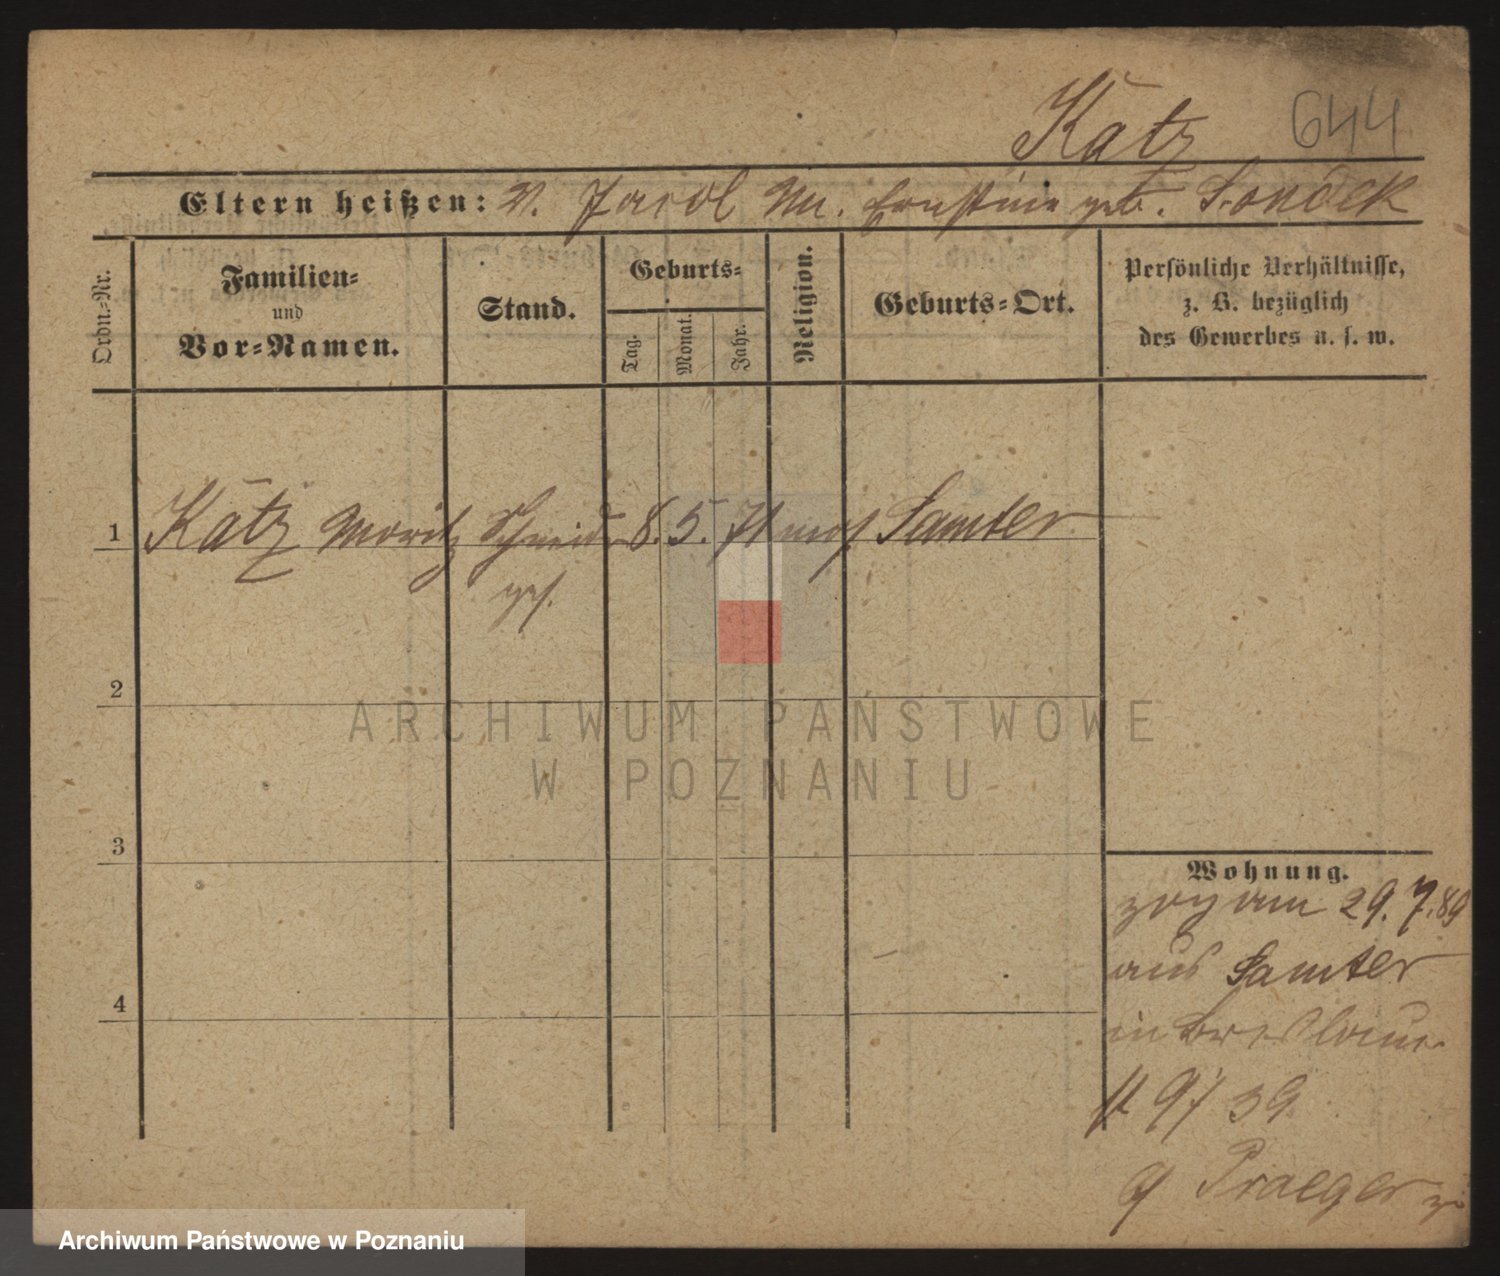 Katz 644
Eltern heißen: V. Jacob M. Ernstine geb. Sondek
Ordn.-Nr.
Familien-
und
Vor-Namen.
Stand.
Geburts-
Tag.
Monat.
Jahr.
Religion.
Geburts-Ort.
Persönliche Verhältnisse,
z. B. bezüglich
des Gewerbes u. s. w.
1 Katz Moritz Schneider 8. 5. 71 mos. Samter
ges.
2
3
4
Wohnung.
zog am 29. 7. 89
aus Samter
in
39
Praeger
ARCHIWUM PAŃSTWOWE
W POZNANIU
Archiwum Państwowe w Poznaniu